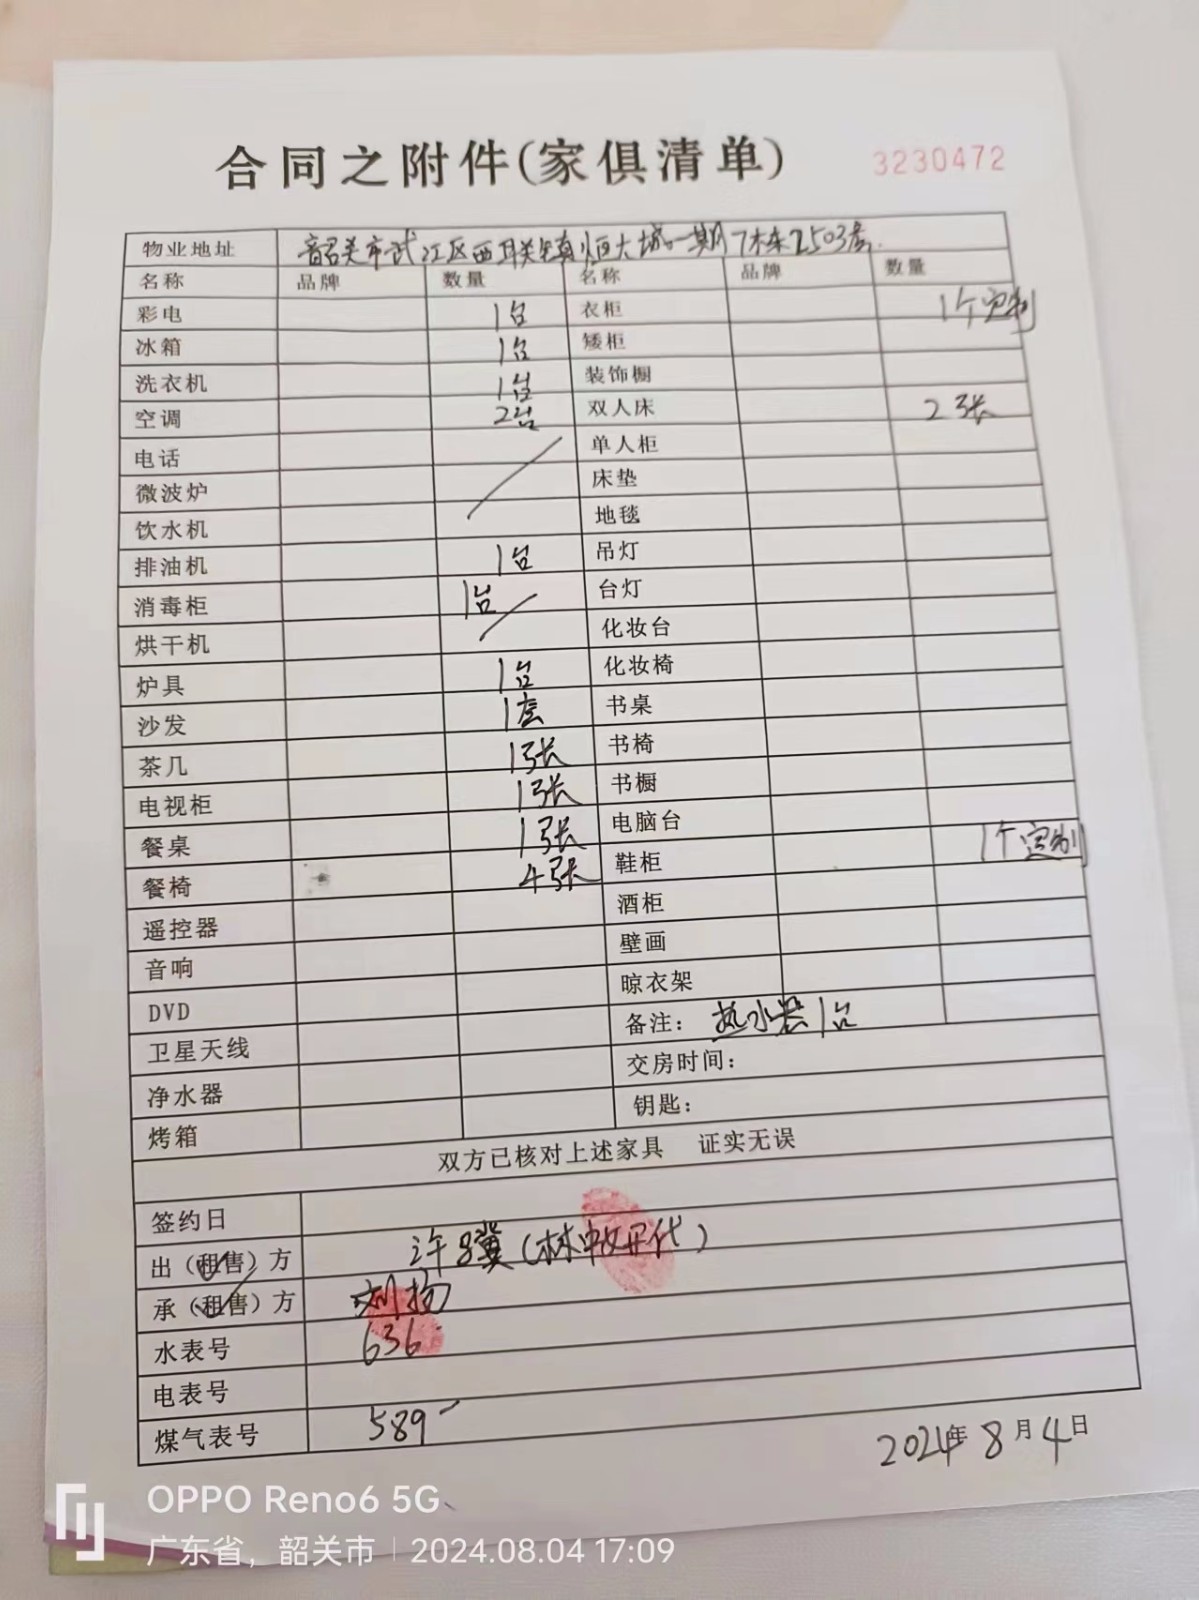 合同之附件(家俱清单) 3230472
物业地址 韶关市武江区西联镇恒大城一期7栋2503房.
名称 品牌 数量 名称 品牌 数量
彩电 1台 衣柜 1个定制
冰箱 1台 矮柜
洗衣机 1台 装饰橱
空调 2台 双人床 2张
电话 单人柜
微波炉 床垫
饮水机 地毯
排油机 1台 吊灯
消毒柜 1台 台灯
烘干机 化妆台
炉具 1台 化妆椅
沙发 1套 书桌
茶几 1张 书椅
电视柜 1张 书橱
餐桌 1张 电脑台
餐椅 4张 鞋柜 1个定制
遥控器 酒柜
音响 壁画
DVD 晾衣架
卫星天线 备注: 热水器1台
净水器 交房时间:
烤箱 钥匙:
双方已核对上述家具 证实无误
签约日
出(租售)方 许骥(林 代)
承(租售)方 刘扬
水表号 636
电表号
煤气表号 589
2024年8月4日
OPPO Reno6 5G
广东省, 韶关市 | 2024.08.04 17:09